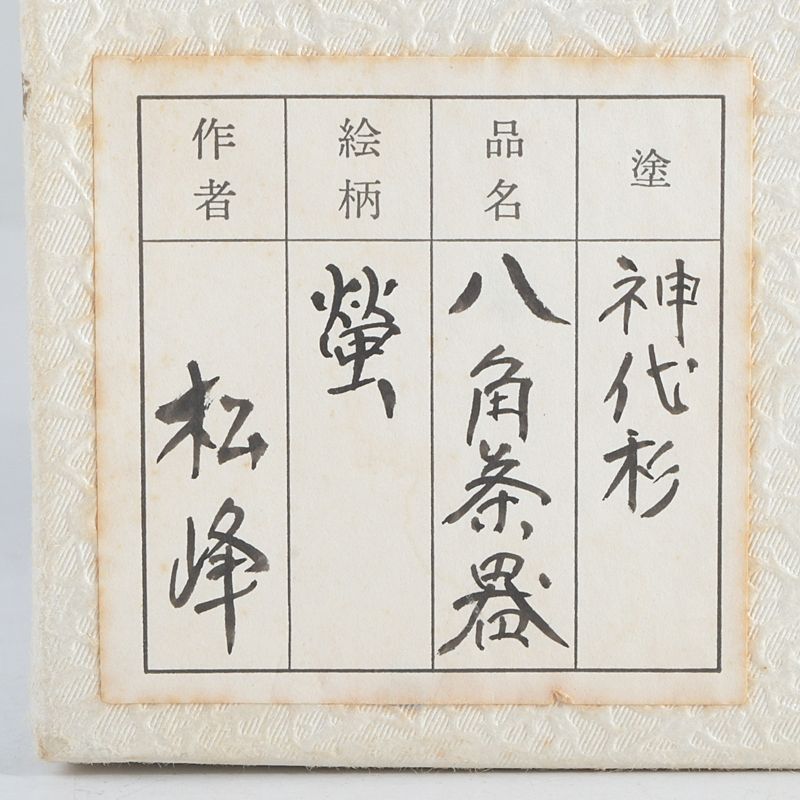 塗
神代杉
品名
八角茶器
絵柄
螢
作者
松峰